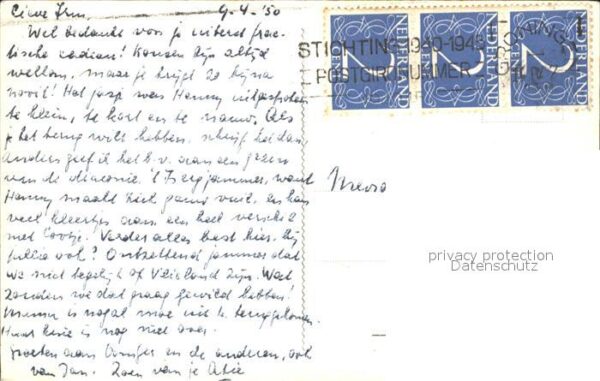 Lieve Irm,
9-4-'50
Wel bedankt voor je uiterst prac-
tische cadeau! Kousen zijn altijd
welkom, maar je krijgt ze bijna
nooit! Het jasje was Henny uitgesproken
te klein, te kort en te nauw. Als
je het terug wilt hebben, schrijf het dan,
anders geef ik het b.v. aan een gezin
van de diaconie. 't Is erg jammer, want
Henny maakt zich
veel kleertjes aan een heel
met Verder alles best hier. Bij
jullie ook? Ontzettend jammer dat
we niet tegelijk op Vlieland zijn. Wat
zouden we dat graag gewild hebben!
is nogal moe uit teruggekomen.
Maar is nog niet over.
Groeten aan en de anderen, ook
van Jan. Zoen van je
Mevr
NEDERLAND
2
NEDERLAND
2
NEDERLAND
2
STICHTING 1940-1945
POSTGIRONUMMER
GRONINGEN
privacy protection
Datenschutz